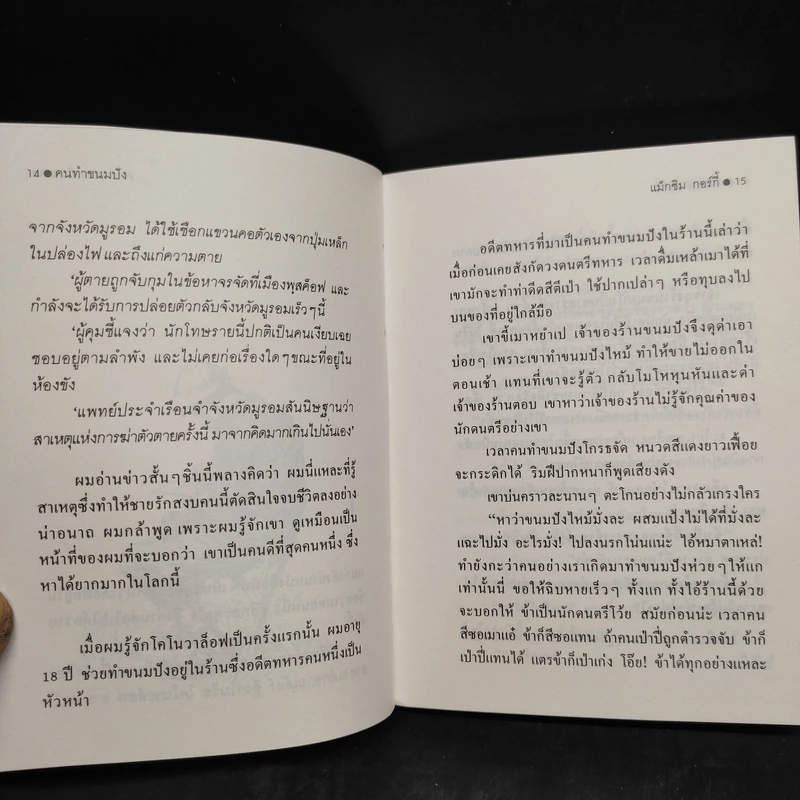 14 ● คนทำขนมปัง
จากจังหวัดมูรอม ได้ใช้เชือกแขวนคอตัวเองจากปุ่มเหล็ก
ในปล่องไฟ และถึงแก่ความตาย
‘ผู้ตายถูกจับกุมในข้อหาจรจัดที่เมืองพุสค็อฟ และ
กำลังจะได้รับการปล่อยตัวกลับจังหวัดมูรอมเร็วๆนี้
‘ผู้คุมชี้แจงว่า นักโทษรายนี้ปกติเป็นคนเงียบเฉย
ชอบอยู่ตามลำพัง และไม่เคยก่อเรื่องใดๆขณะที่อยู่ใน
ห้องขัง
‘แพทย์ประจำเรือนจำจังหวัดมูรอมสันนิษฐานว่า
สาเหตุแห่งการฆ่าตัวตายครั้งนี้ มาจากคิดมากเกินไปนั่นเอง’
ผมอ่านข่าวสั้นๆชิ้นนี้พลางคิดว่า ผมนี่แหละที่รู้
สาเหตุซึ่งทำให้ชายรักสงบคนนี้ตัดสินใจจบชีวิตลงอย่าง
น่าอนาถ ผมกล้าพูด เพราะผมรู้จักเขา ดูเหมือนเป็น
หน้าที่ของผมที่จะบอกว่า เขาเป็นคนดีที่สุดคนหนึ่ง ซึ่ง
หาได้ยากมากในโลกนี้
เมื่อผมรู้จักโคโนวาล็อฟเป็นครั้งแรกนั้น ผมอายุ
18 ปี ช่วยทำขนมปังอยู่ในร้านซึ่งอดีตทหารคนหนึ่งเป็น
หัวหน้า
แม็กซิม กอร์กี้ ● 15
อดีตทหารที่มาเป็นคนทำขนมปังในร้านนี้เล่าว่า
เมื่อก่อนเคยสังกัดวงดนตรีทหาร เวลาดื่มเหล้าเมาได้ที่
เขามักจะทำท่าดีดสีตีเป่า ใช้ปากเปล่าๆ หรือทุบลงไป
บนของที่อยู่ใกล้มือ
เขาขี้เมาหยำเป เจ้าของร้านขนมปังจึงดุด่าเอา
บ่อยๆ เพราะเขาทำขนมปังไหม้ ทำให้ขายไม่ออกใน
ตอนเช้า แทนที่เขาจะรู้ตัว กลับโมโหหุนหันและด่า
เจ้าของร้านตอบ เขาหาว่าเจ้าของร้านไม่รู้จักคุณค่าของ
นักดนตรีอย่างเขา
เวลาคนทำขนมปังโกรธจัด หนวดสีแดงยาวเฟื้อย
จะกระดิกได้ ริมฝีปากหนาก็พูดเสียงดัง
เขาบ่นคราวละนานๆ ตะโกนอย่างไม่กลัวเกรงใคร
“หาว่าขนมปังไหม้มั่งละ ผสมแป้งไม่ได้ที่มั่งละ
แฉะไปมั่ง อะไรมั่ง! ไปลงนรกโน่นแน่ะ ไอ้หมาตาเหล่!
ทำยังกะว่าคนอย่างเราเกิดมาทำขนมปังห่วยๆให้แก
เท่านั้นนี่ ขอให้ฉิบหายเร็วๆ ทั้งแก ทั้งไอ้ร้านนี้ด้วย
จะบอกให้ ข้าเป็นนักดนตรีโว้ย สมัยก่อนน่ะ เวลาคน
สีซอเมาแอ๋ ข้าก็สีซอแทน ถ้าคนเป่าปี่ถูกตำรวจจับ ข้าก็
เป่าปี่แทนได้ แตรข้าก็เป่าเก่ง โอ๊ย! ข้าได้ทุกอย่างแหละ